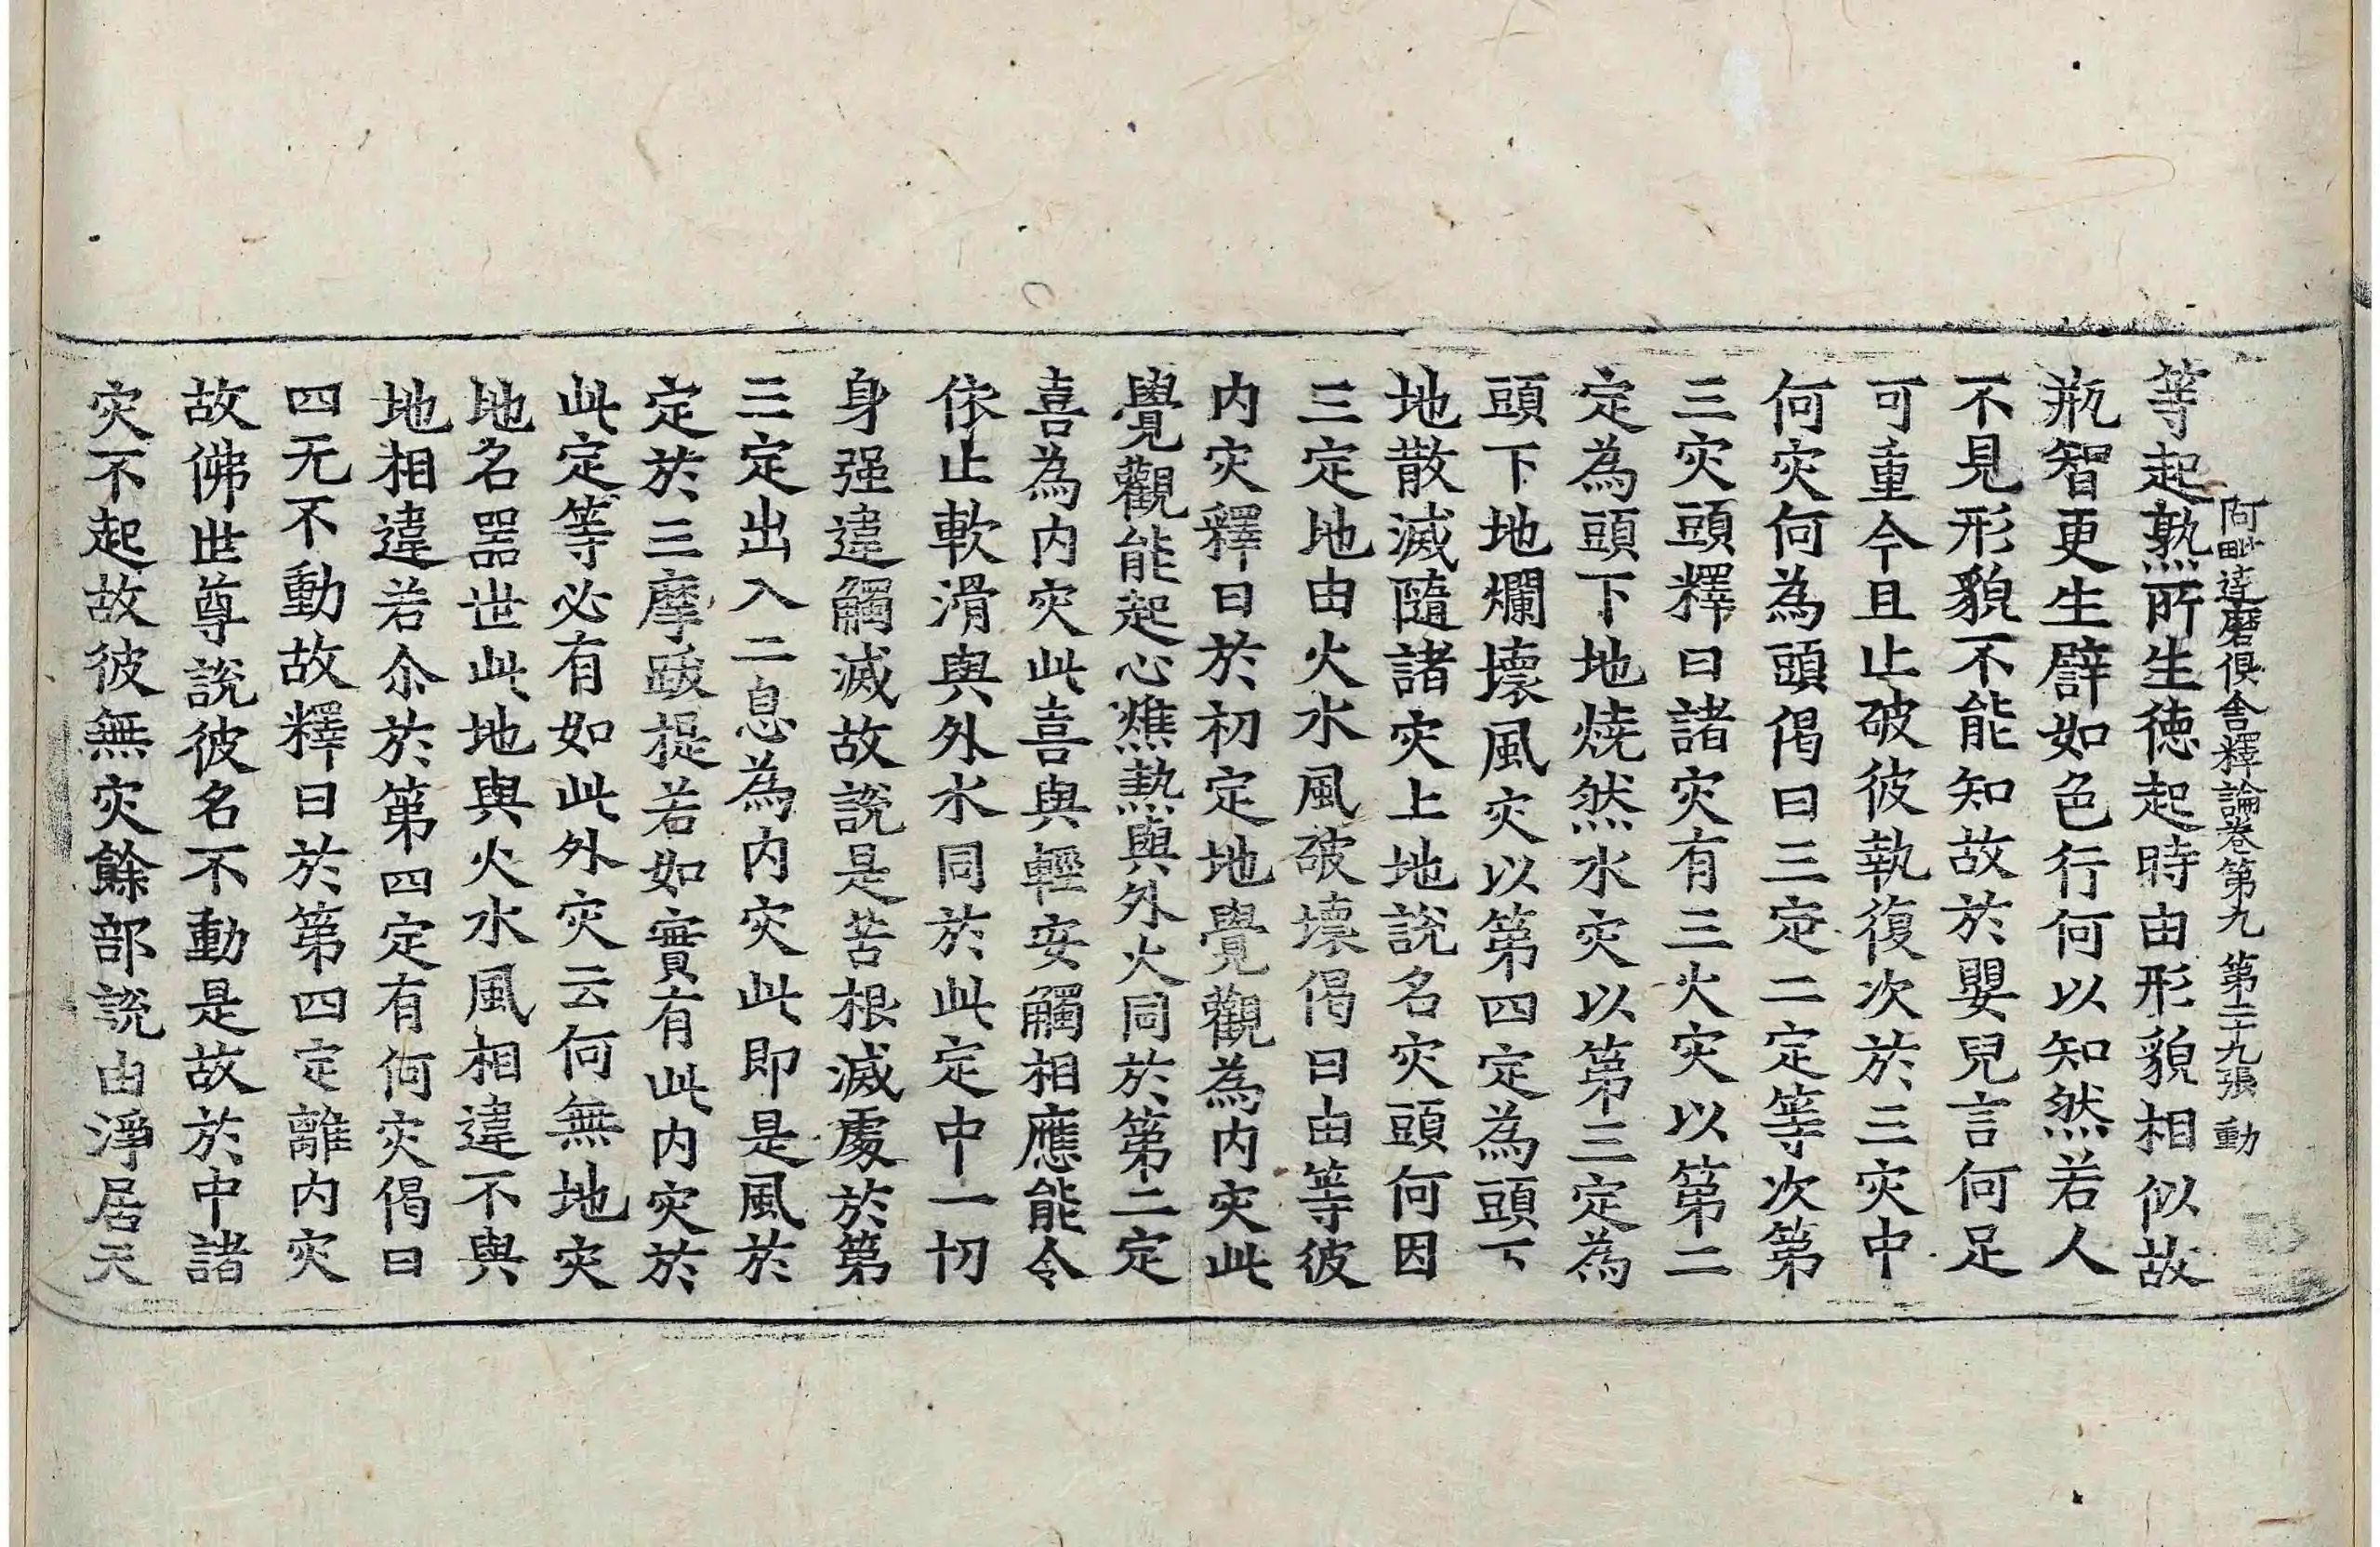 阿毗達磨俱舍釋論卷第九 第二十九張 動
等起熟所生德起時由形貌相似故
瓶智更生譬如色行何以知然若人
不見形貌不能知故於嬰兒言何足
可重今且止破彼執復次於三灾中
何灾何為頭偈曰三定二定等次第
三灾頭釋曰諸灾有三火灾以第二
定為頭下地燒然水灾以第三定為
頭下地爛壞風灾以第四定為頭下
地散滅隨諸灾上地說名灾頭何因
三定地由火水風破壞偈曰由等彼
内灾釋曰於初定地覺觀為内灾此
覺觀能起心燋熱與外火同於第二定
喜為内灾此喜與輕安觸相應能令
依止軟滑與外水同於此定中一切
身强違觸滅故說是苦根滅處於第
三定出入二息為内灾此即是風於
定於三摩跋提若如實有此内灾於
此定等必有如此外灾云何無地灾
地名器世此地與火水風相違不與
地相違若尒於第四定有何灾偈曰
四无不動故釋曰於第四定離内灾
故佛世尊說彼名不動是故於中諸
灾不起故彼無灾餘部說由淨居天